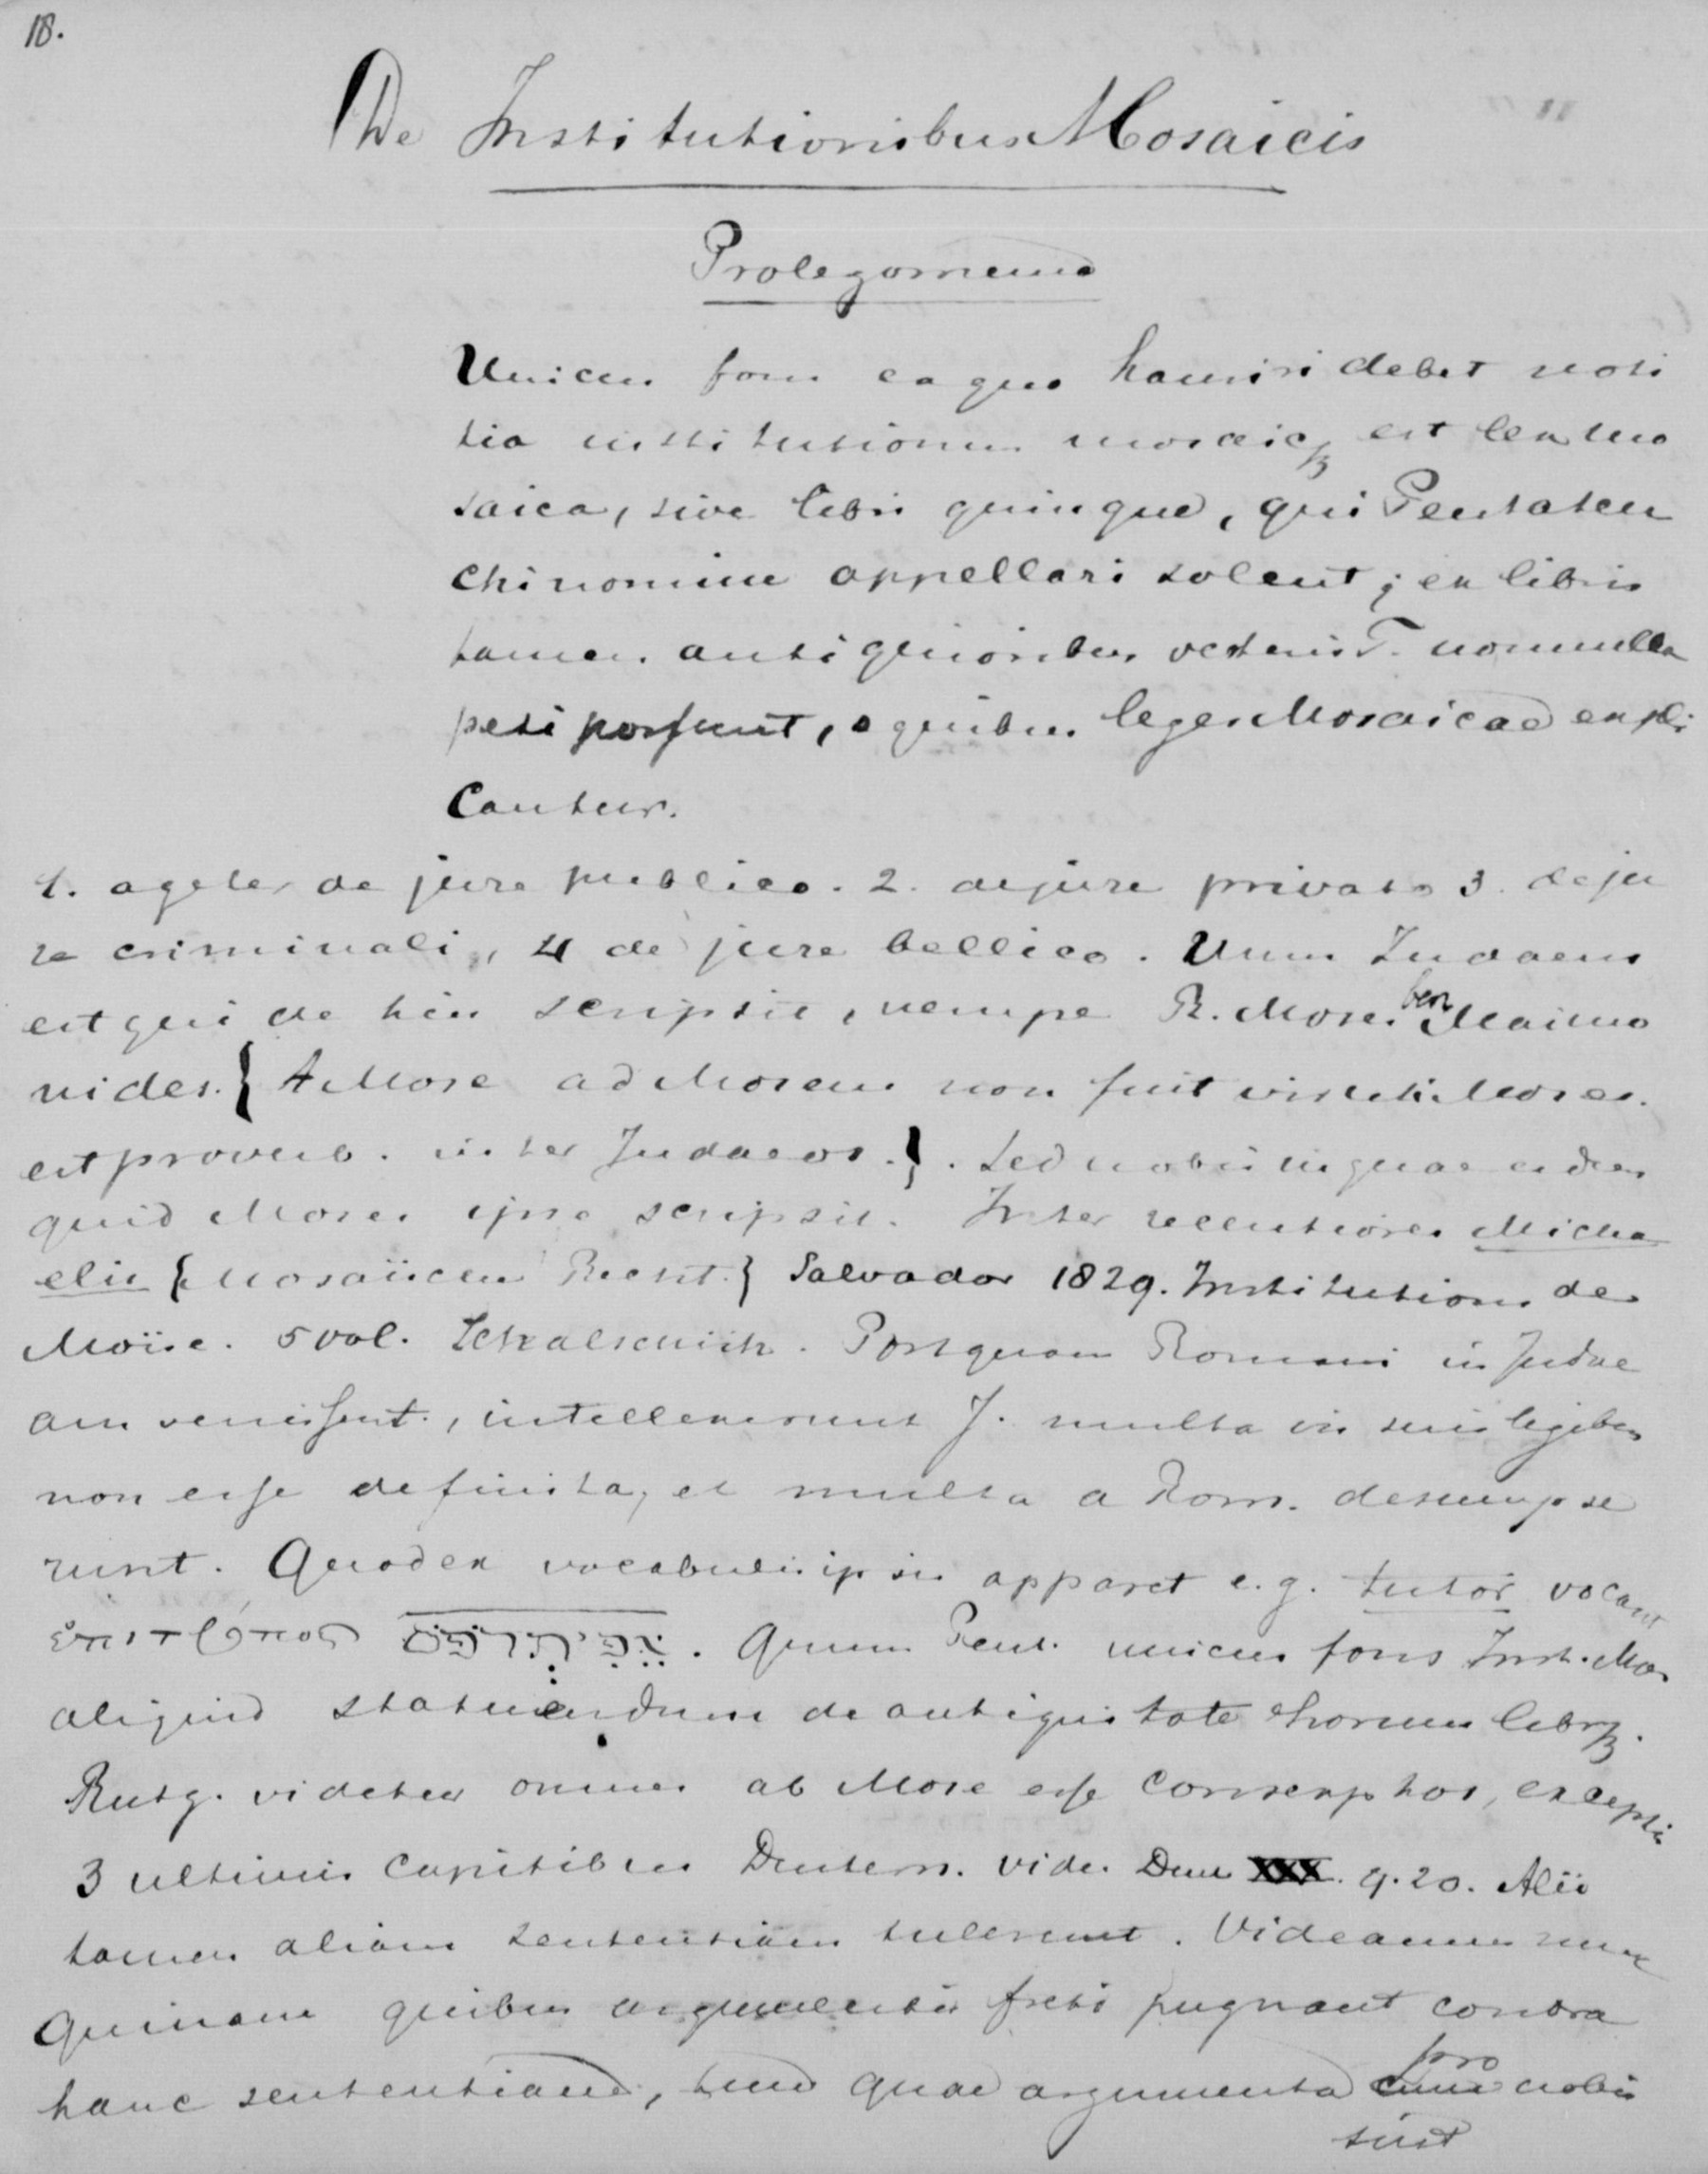 18.
De Institutionibus Mosaicis
Prolegomena
Unicus fons e quo hauriri debet noti
tia institutionum mosaicꝝ est lex mo
saica, sive libri quinque, qui Pentateu
chi nomine appellari solent; ex libris
tamen antiquioribus veteris T. nonnulla
peti possunt, e quibus leges Mosaicae expli
cantur.
1. agetur de jure publico. 2. de jure privato 3. de ju
re criminali, 4 de jure bellico. Unus Judaeus
est qui de his scripsit, nempe R. Moses ben Maimo
nides. { A Mose ad Mosem non fuit uti Moses.
est proverb. inter Judaeos. }. Sed nobis
quid Moses ipse scripsit. Inter recentiores Micha
elis { Mosaïsches Recht. } Salvador 1829. Institutions de
Moïse. 5 vol. Schalschith. Postquam Romani in Judae
am venissent, intellexerunt J. multa in suis legibus
non esse definita, et multa a Rom. desumpse
runt. Quod ex vocabulis ipsis apparet e.g. tutor vocant
ἐπίτροπος אפיתרופוס. Quum Pent. unicus fons Inst. Mos
aliquid statuendum de antiquitate horum librꝝ.
Rutg. videtur omnes ab Mose esse conscriptos, exceptis
3 ultimis capitibus Deutern. vide Deut XXX. 9.20. Alii
tamen aliam sententiam tulerunt. Videamus nunc
quinam quibus argumentis freti pugnant contra
hanc sententiam, tum quae argumenta cum pro nobis
sint